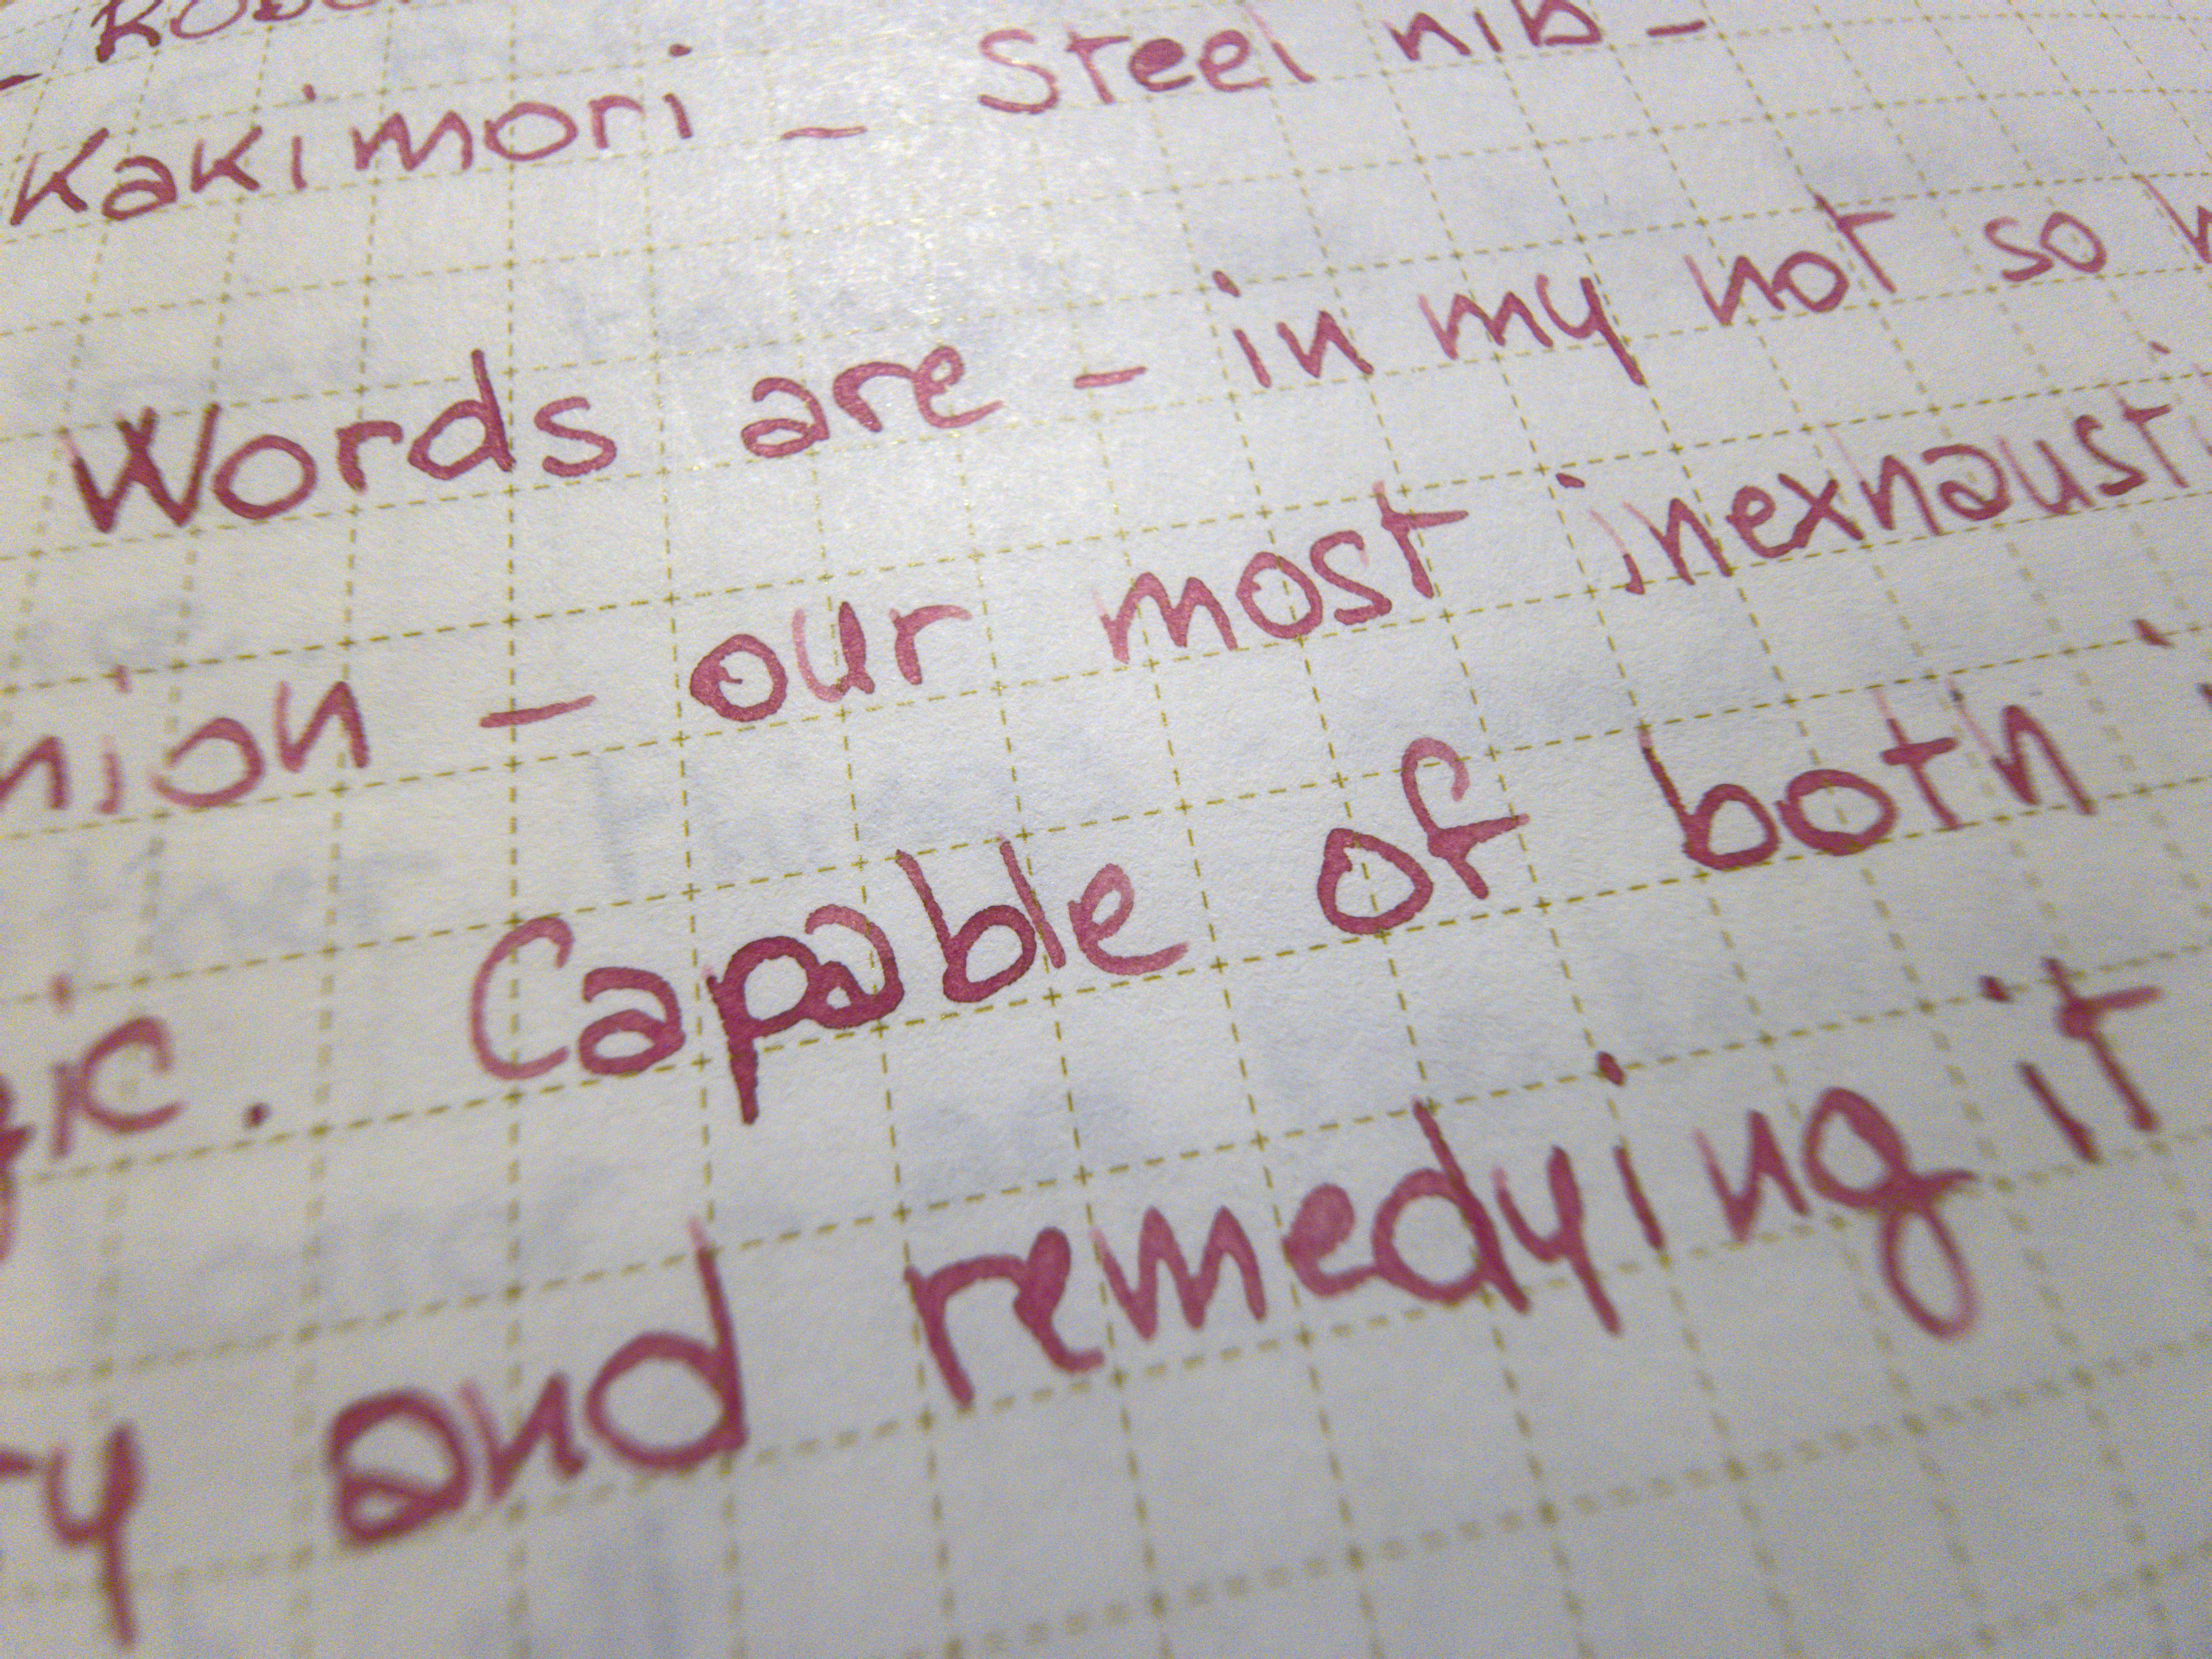 Kakimori - Steel nib -
Words are - in my not so h
nion - our most inexhausti
gic. Capable of both i
ry and remedying it